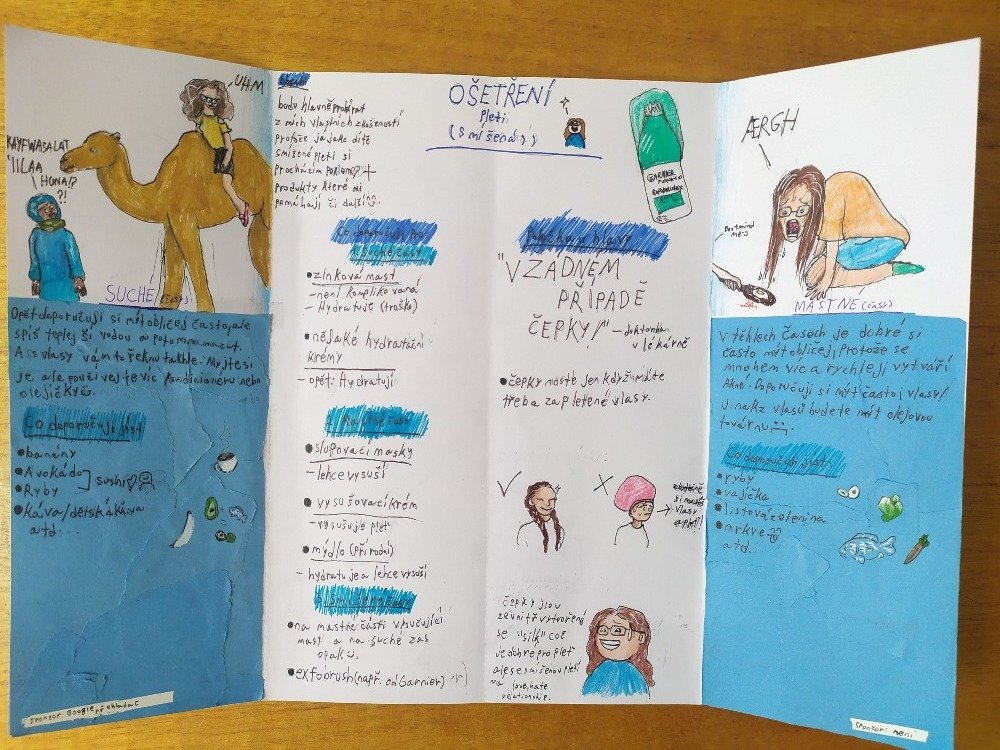 UHM
KAYFWASALAT
'IILAA
HONA!?
?!
SUCHÉ (části)
Opět doporučuji si mýt obličej často, ale
spíš teplejší vodou a potom namazat.
A s vlasy vám to řeknu takhle: Myjte si
je ale používejte víc kondicionéru nebo
olejíčky
Co doporučuji jíst
•banány
•Avokádo
•Ryby
sushi
•káva/dětská káva
atd...
Sponzor Google překladač
budu hlavně probírat
z mích vlastních zkušeností
protože já jako dítě
smíšené pleti si
procházím peklem?! +
produkty které mi
pomáhají či další
Co doporučuji na
suché části
•zinková mast
-není komplikovaná
-Hydratuje (troško)
•nějaké hydratační
krémy
-opět: Hydratují
Mastné části
•slupovací masky
-lehce vysuší
•vysušovací krém
-vysušuje pleť
•mýdlo (přírodní)
-hydratuje a lehce vysuší
•na mastné části vysušující
mast a na suché zas
opak
•exfobrush (např. od Garnier)
OŠETŘENÍ
pleti
(smíšená)
GARNIER
Pokožka hlavy
"V ŽÁDNÉM
PŘÍPADĚ
ČEPKY!"
- doktorka
v lékárně
•čepky noste jen když máte
třeba zapletené vlasy.
si mastíš
vlasy
Čepky jsou
zevnitř vytvořené
se "silk" což
je dobré pro pleť
ale se smíšenou pletí
má love, hate
relationship.
ÆRGH
Dont mind
me:)
MASTNÉ (části)
V těhlech časech je dobré si
často mýt obličej, Protože se
mnohem víc a rychleji vytváří
Akné. Doporučuji si mýt často i vlasy/
Jinak z vlasů budete mít olejovou
továrnu
Co doporučuji jíst
•ryby
•vajíčka
•listová zelenina
•mrkve
atd...
Sponzoři není